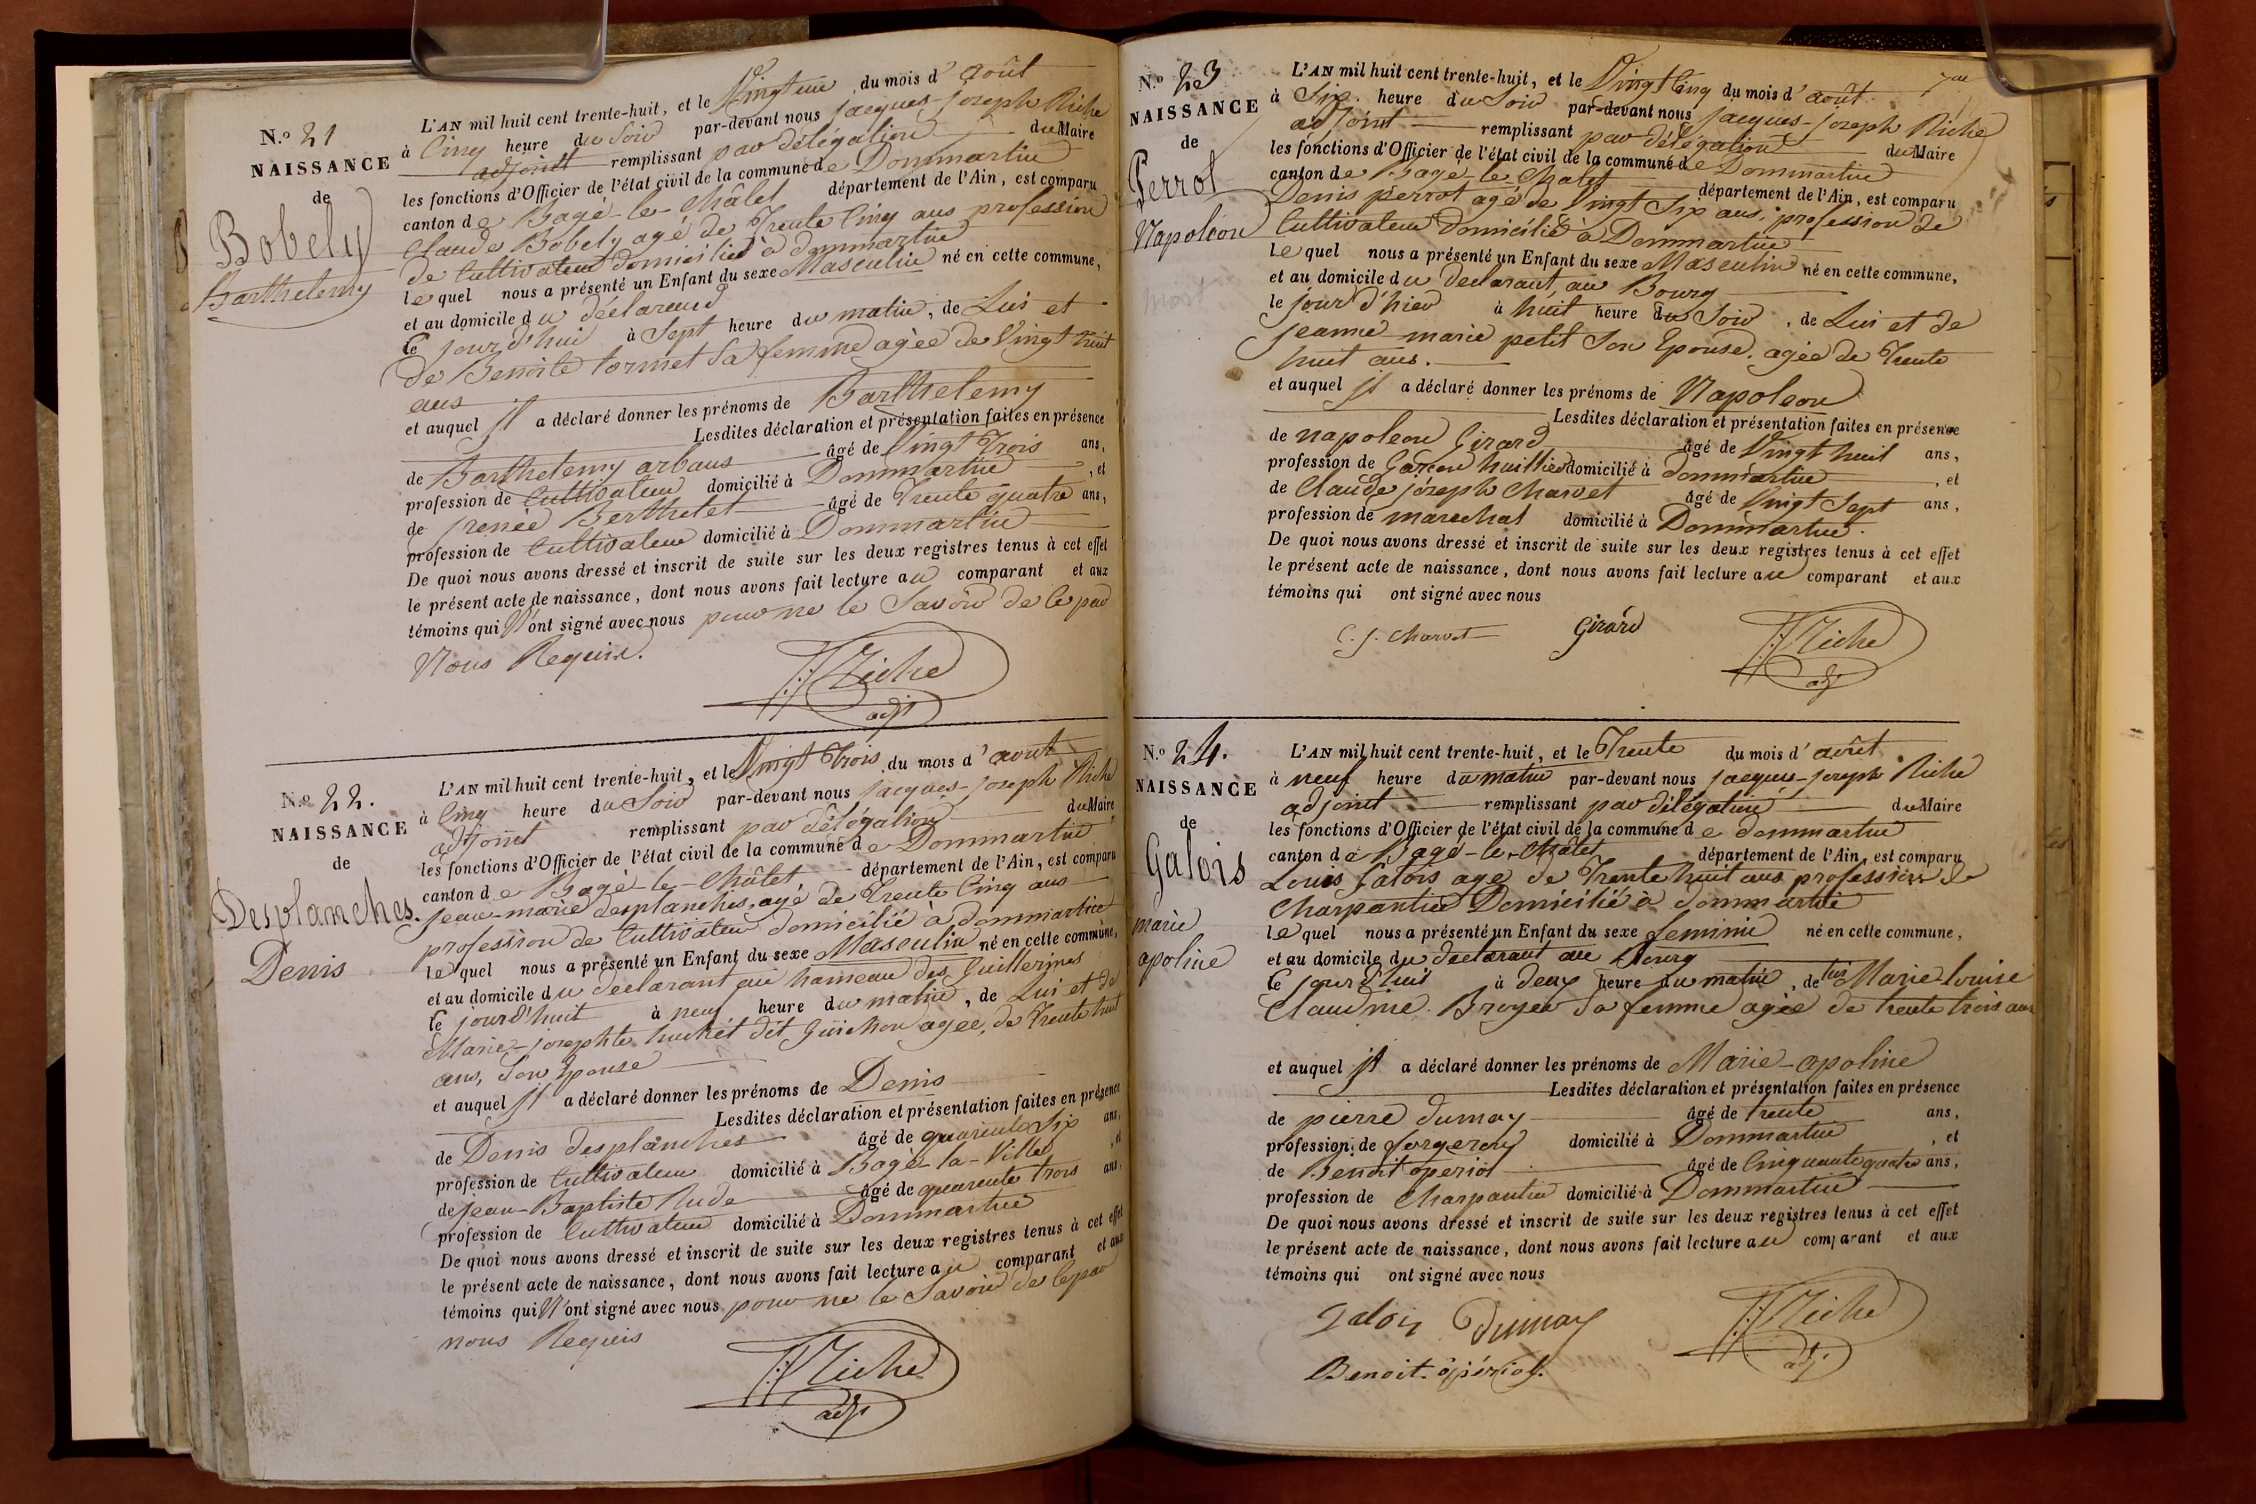 N.o 21
NAISSANCE
de
Bobely
Barthelemy
L'AN mil huit cent trente-huit, et le Vingt un du mois d'août
à Cinq heure du Soir par-devant nous jacques-joseph Riche
adjoint remplissant par délégation du Maire
les fonctions d'Officier de l'état civil de la commune de Dommartin
canton de Bagé-le-Châtel département de l'Ain, est comparu
Claude Bobely agé de Trente Cinq ans profession
de Cultivateur domicilié à dommartin
lequel nous a présenté un Enfant du sexe Masculin né en cette commune,
et au domicile du déclarent
le jour d'hui à Sept heure du matin, de Lui et
de Benoite tormet Sa femme agée de Vingt huit
ans
et auquel il a déclaré donner les prénoms de Barthelemy
Lesdites déclaration et présentation faites en présence
de Barthelemy arbaus âgé de Vingt Trois ans,
profession de Cultivateur domicilié à Dommartin, et
de Berthelet âgé de Trente quatre ans,
profession de Cultivateur domicilié à Dommartin
De quoi nous avons dressé et inscrit de suite sur les deux registres tenus à cet effet
le présent acte de naissance, dont nous avons fait lecture au comparant et aux
témoins qui N'ont signé avec nous pour ne le Savoir de ce par
Nous Requis.
Riche
adjt
N.o 22.
NAISSANCE
de
Desplanches
Denis
L'AN mil huit cent trente-huit, et le Vingt Trois du mois d'août
à Cinq heure du Soir par-devant nous jacques-joseph Riche
adjoint remplissant par délégation du Maire
les fonctions d'Officier de l'état civil de la commune de Dommartin
canton de Bagé-le-Châtel département de l'Ain, est comparu
jean-marie desplanches, agé de Trente Cinq ans
profession de Cultivateur domicilié à dommartin
lequel nous a présenté un Enfant du sexe Masculin né en cette commune,
et au domicile du declarant au hameau des Guillermes
le jourd'huit à neuf heure du matin, de Lui et de
Marie-josephte huchet dit Guichon agée, de Trente huit
ans, Son Epouse
et auquel il a déclaré donner les prénoms de Denis
Lesdites déclaration et présentation faites en présence
de Denis desplanches âgé de quarente Six ans,
profession de Cultivateur domicilié à Bagé-la-Ville, et
de jean-Baptiste Rude âgé de quarente trois ans,
profession de Cultivateur domicilié à Dommartin
De quoi nous avons dressé et inscrit de suite sur les deux registres tenus à cet effet
le présent acte de naissance, dont nous avons fait lecture au comparant et aux
témoins qui N'ont signé avec nous pour ne le Savoir de ce par
nous Requis
Riche
adjt
N.o 23
NAISSANCE
de
Perrot
Napoléon
L'AN mil huit cent trente-huit, et le Vingt Cinq du mois d'août
à Six heure du Soir par-devant nous jacques-joseph Riche
adjoint remplissant par délégation du Maire
les fonctions d'Officier de l'état civil de la commune de Dommartin
canton de Bagé-le-Chatel département de l'Ain, est comparu
Denis perrot agé de Vingt Six ans, profession de
Cultivateur domicilié à Dommartin
Lequel nous a présenté un Enfant du sexe Masculin né en cette commune,
et au domicile du declarant, au Bourg
le jour d'hier à huit heure du Soir, de Lui et de
jeanne marie petit Son Epouse, agée de Trente
huit ans.
et auquel il a déclaré donner les prénoms de Napoleon
Lesdites déclaration et présentation faites en présence
de napoleon Girard âgé de Vingt huit ans,
profession de Garcon huillier domicilié à dommartin, et
de Claude joseph Charvet âgé de Vingt Sept ans,
profession de marechal domicilié à Dommartin.
De quoi nous avons dressé et inscrit de suite sur les deux registres tenus à cet effet
le présent acte de naissance, dont nous avons fait lecture au comparant et aux
témoins qui ont signé avec nous
C. J. Charvet Girard Riche
adjt
N.o 24.
NAISSANCE
de
Galois
marie
apoline
L'AN mil huit cent trente-huit, et le Trente du mois d'août
à neuf heure du matin par-devant nous jacques-joseph Riche
adjoint remplissant par délégation du Maire
les fonctions d'Officier de l'état civil de la commune de dommartin
canton de Bagé-le-Châtel département de l'Ain, est comparu
Louis Galois agé de Trente huit ans profession de
Charpantier Domicilié à dommartin
lequel nous a présenté un Enfant du sexe feminin né en cette commune,
et au domicile du declarant au Bourg
le jourd'huit à deux heure du matin, de lui Marie-louise
Claudine Broyer Sa femme agée de trente trois ans
et auquel il a déclaré donner les prénoms de Marie-apoline
Lesdites déclaration et présentation faites en présence
de pierre dumay âgé de trente ans,
profession de forgeron domicilié à Dommartin, et
de Benoit operiol âgé de Cinquante quatre ans,
profession de Charpantier domicilié à Dommartin
De quoi nous avons dressé et inscrit de suite sur les deux registres tenus à cet effet
le présent acte de naissance, dont nous avons fait lecture au comparant et aux
témoins qui ont signé avec nous
Galois Dumay Riche
Benoit. opériol. adjt